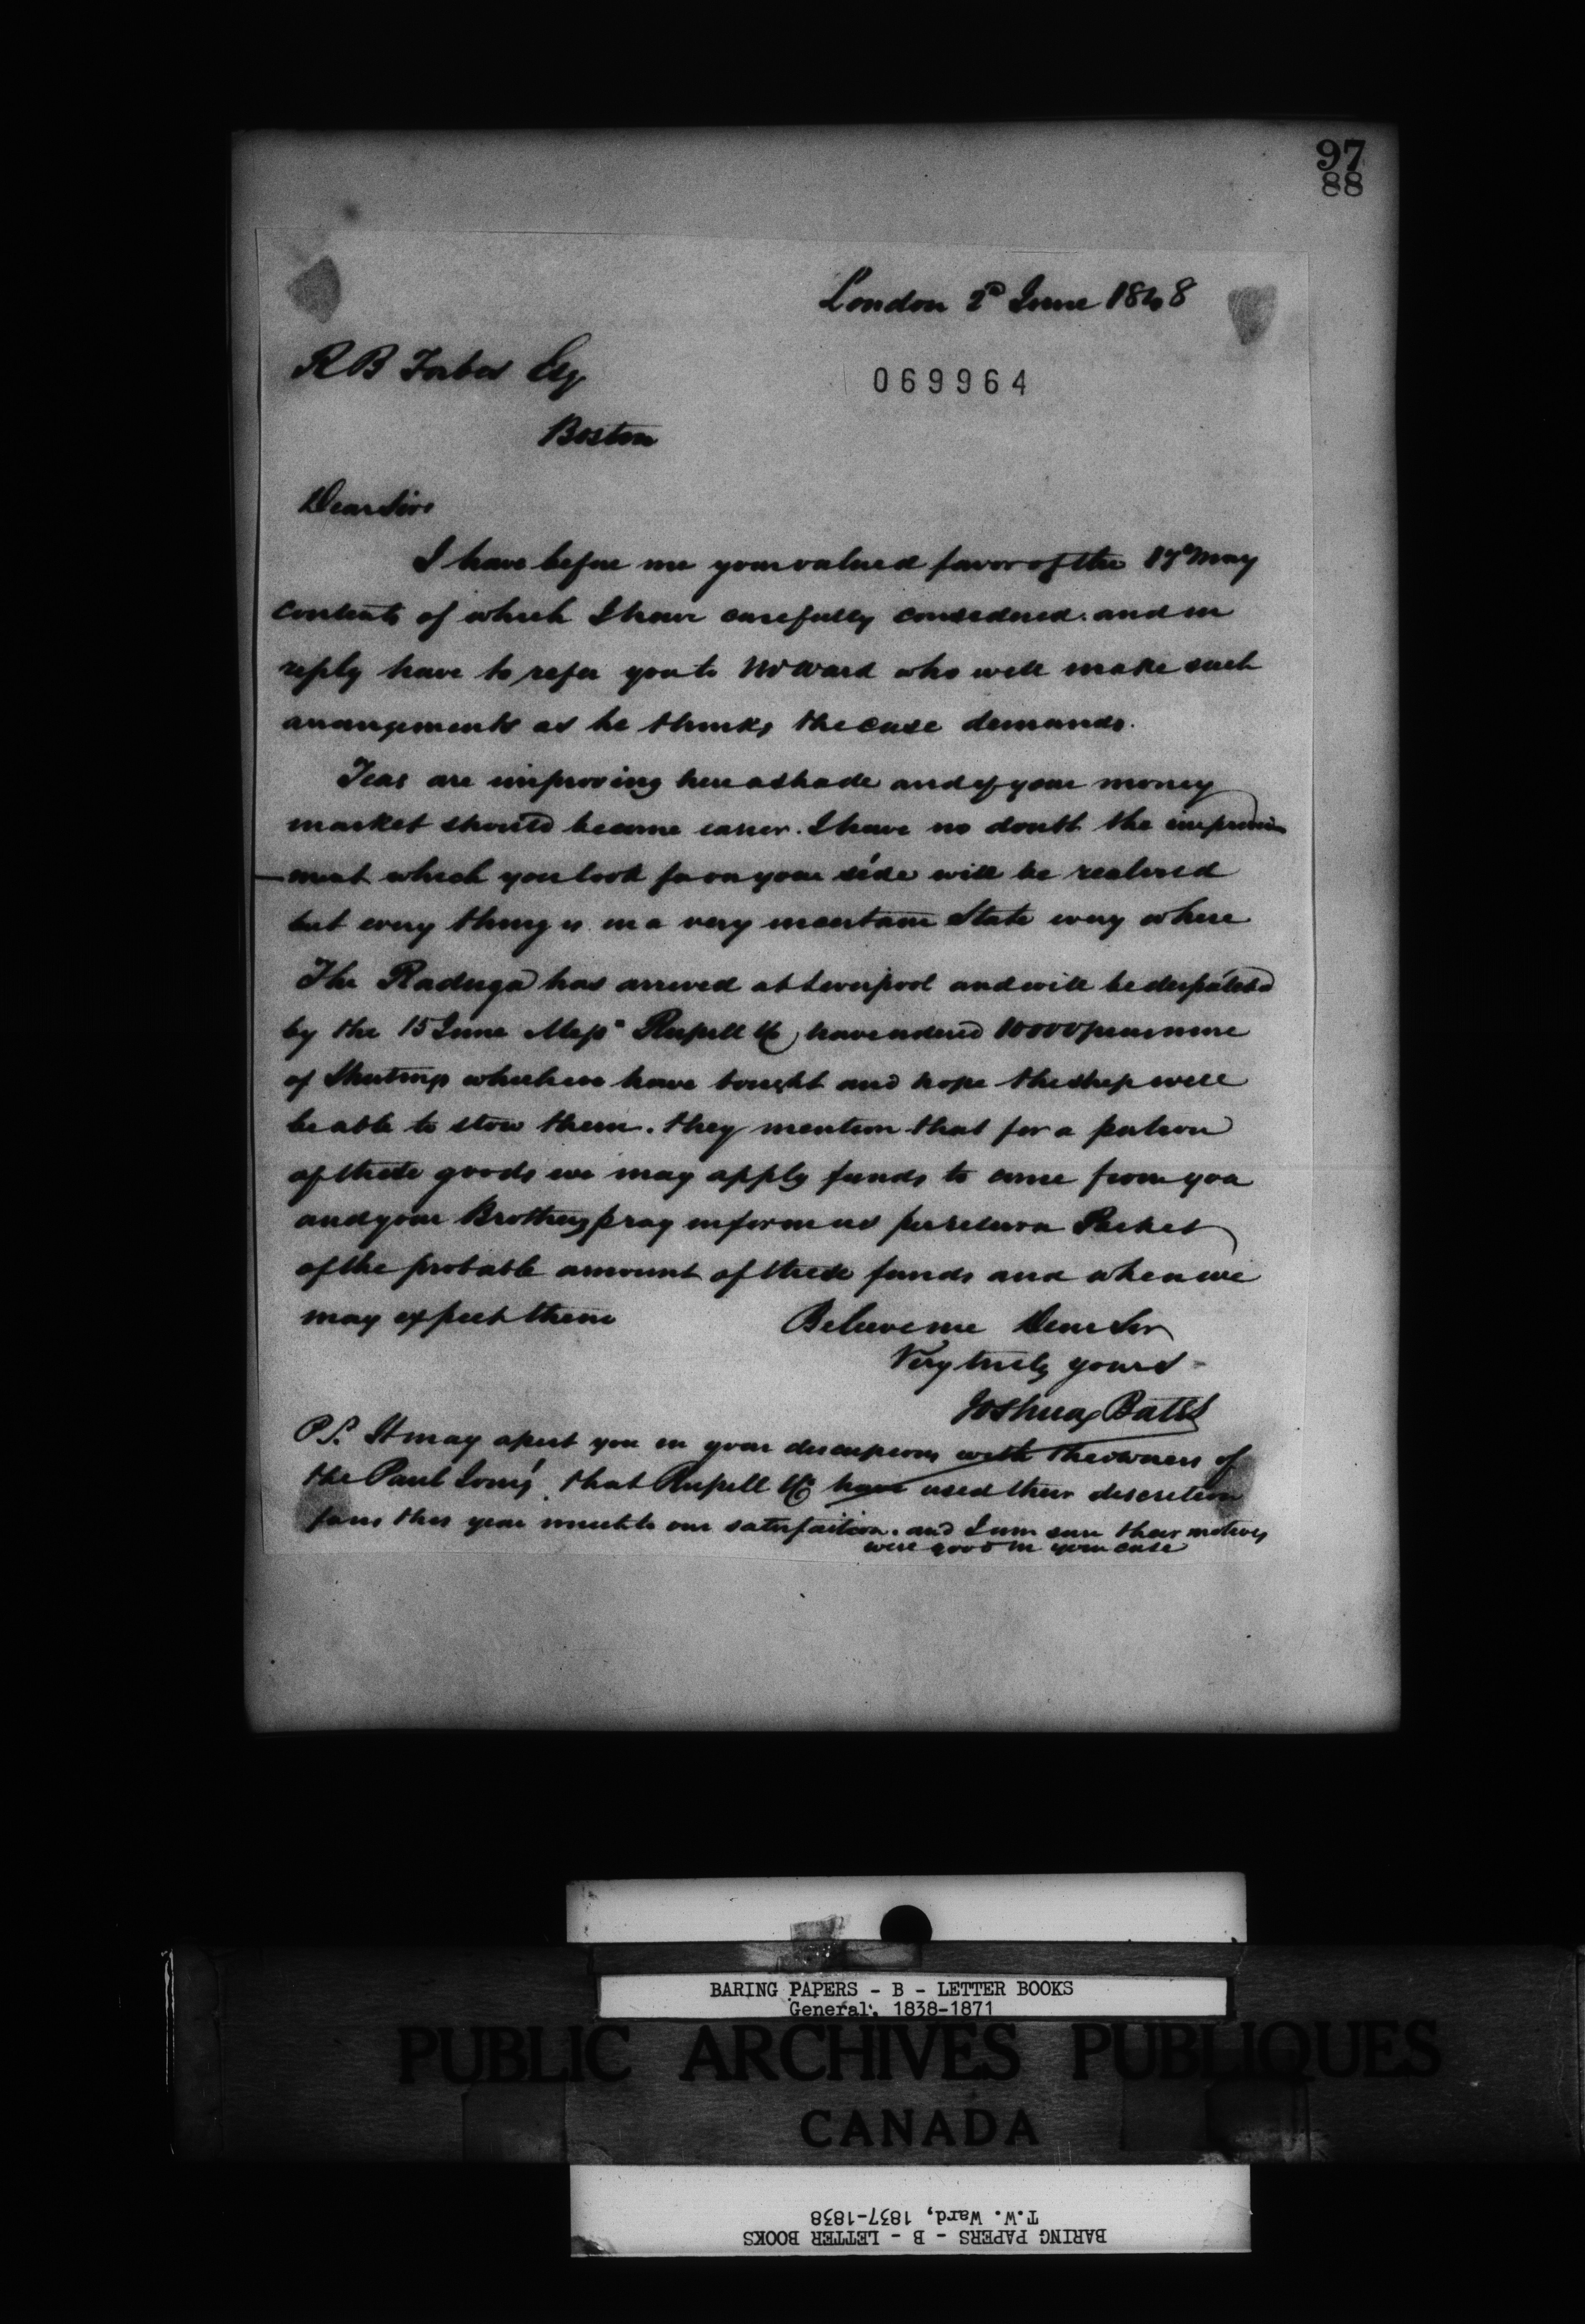 97
88
London 2d June 1848
R B Forbes Esq
069964
Boston
Dear Sir
I have before me your valued favor of the 17th May
contents of which I have carefully considered. and in
reply have to refer you to Mr Ward who will make such
arrangements as he thinks the case demands.
Teas are improving here a shade and if your money
market should become easier. I have no doubt the improve
ment which you look for on your side will be realised
but every thing is in a very uncertain State every where
The Raduga has arrived at Liverpool and will be despatched
by the 15 June Messrs Russell &Co have ordered 10000 pieces more
of Shirtings which we have bought and hope the ship will
be able to stow them. they mention that for a portion
of these goods we may apply funds to come from you
and your Brother, pray inform us per return Packet
of the probable amount of these funds and when we
may expect them
Believe me Dear Sir
Very truly yours
Joshua Bates
P.S. It may assist you in your discussions with the owners of
the Paul Jones that Russell &Co have used their discretion
this year much to our satisfaction. and I am sure their motives
were good in your case
BARING PAPERS - B - LETTER BOOKS
General, 1838-1871
PUBLIC ARCHIVES PUBLIQUES
CANADA
T.W. Ward, 1837-1838
BARING PAPERS - B - LETTER BOOKS